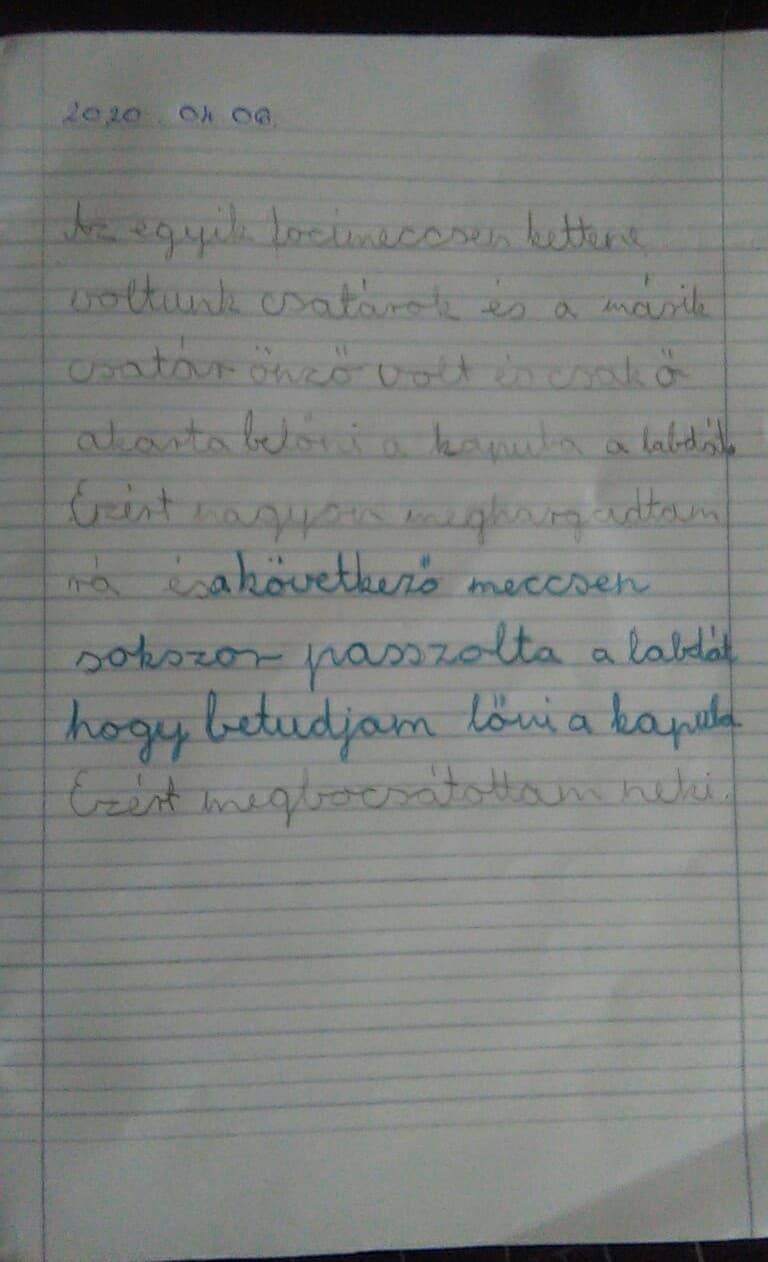 2020 04 06.
Az egyik focimeccsen ketten
voltunk csatárok és a másik
csatár önző volt és csak ő
akarta belőni a kapuba a labdát.
Ezért nagyon megharagudtam
rá és a következő meccsen
sokszor passzolta a labdát
hogy betudjam lőni a kapuba.
Ezért megbocsátottam neki.